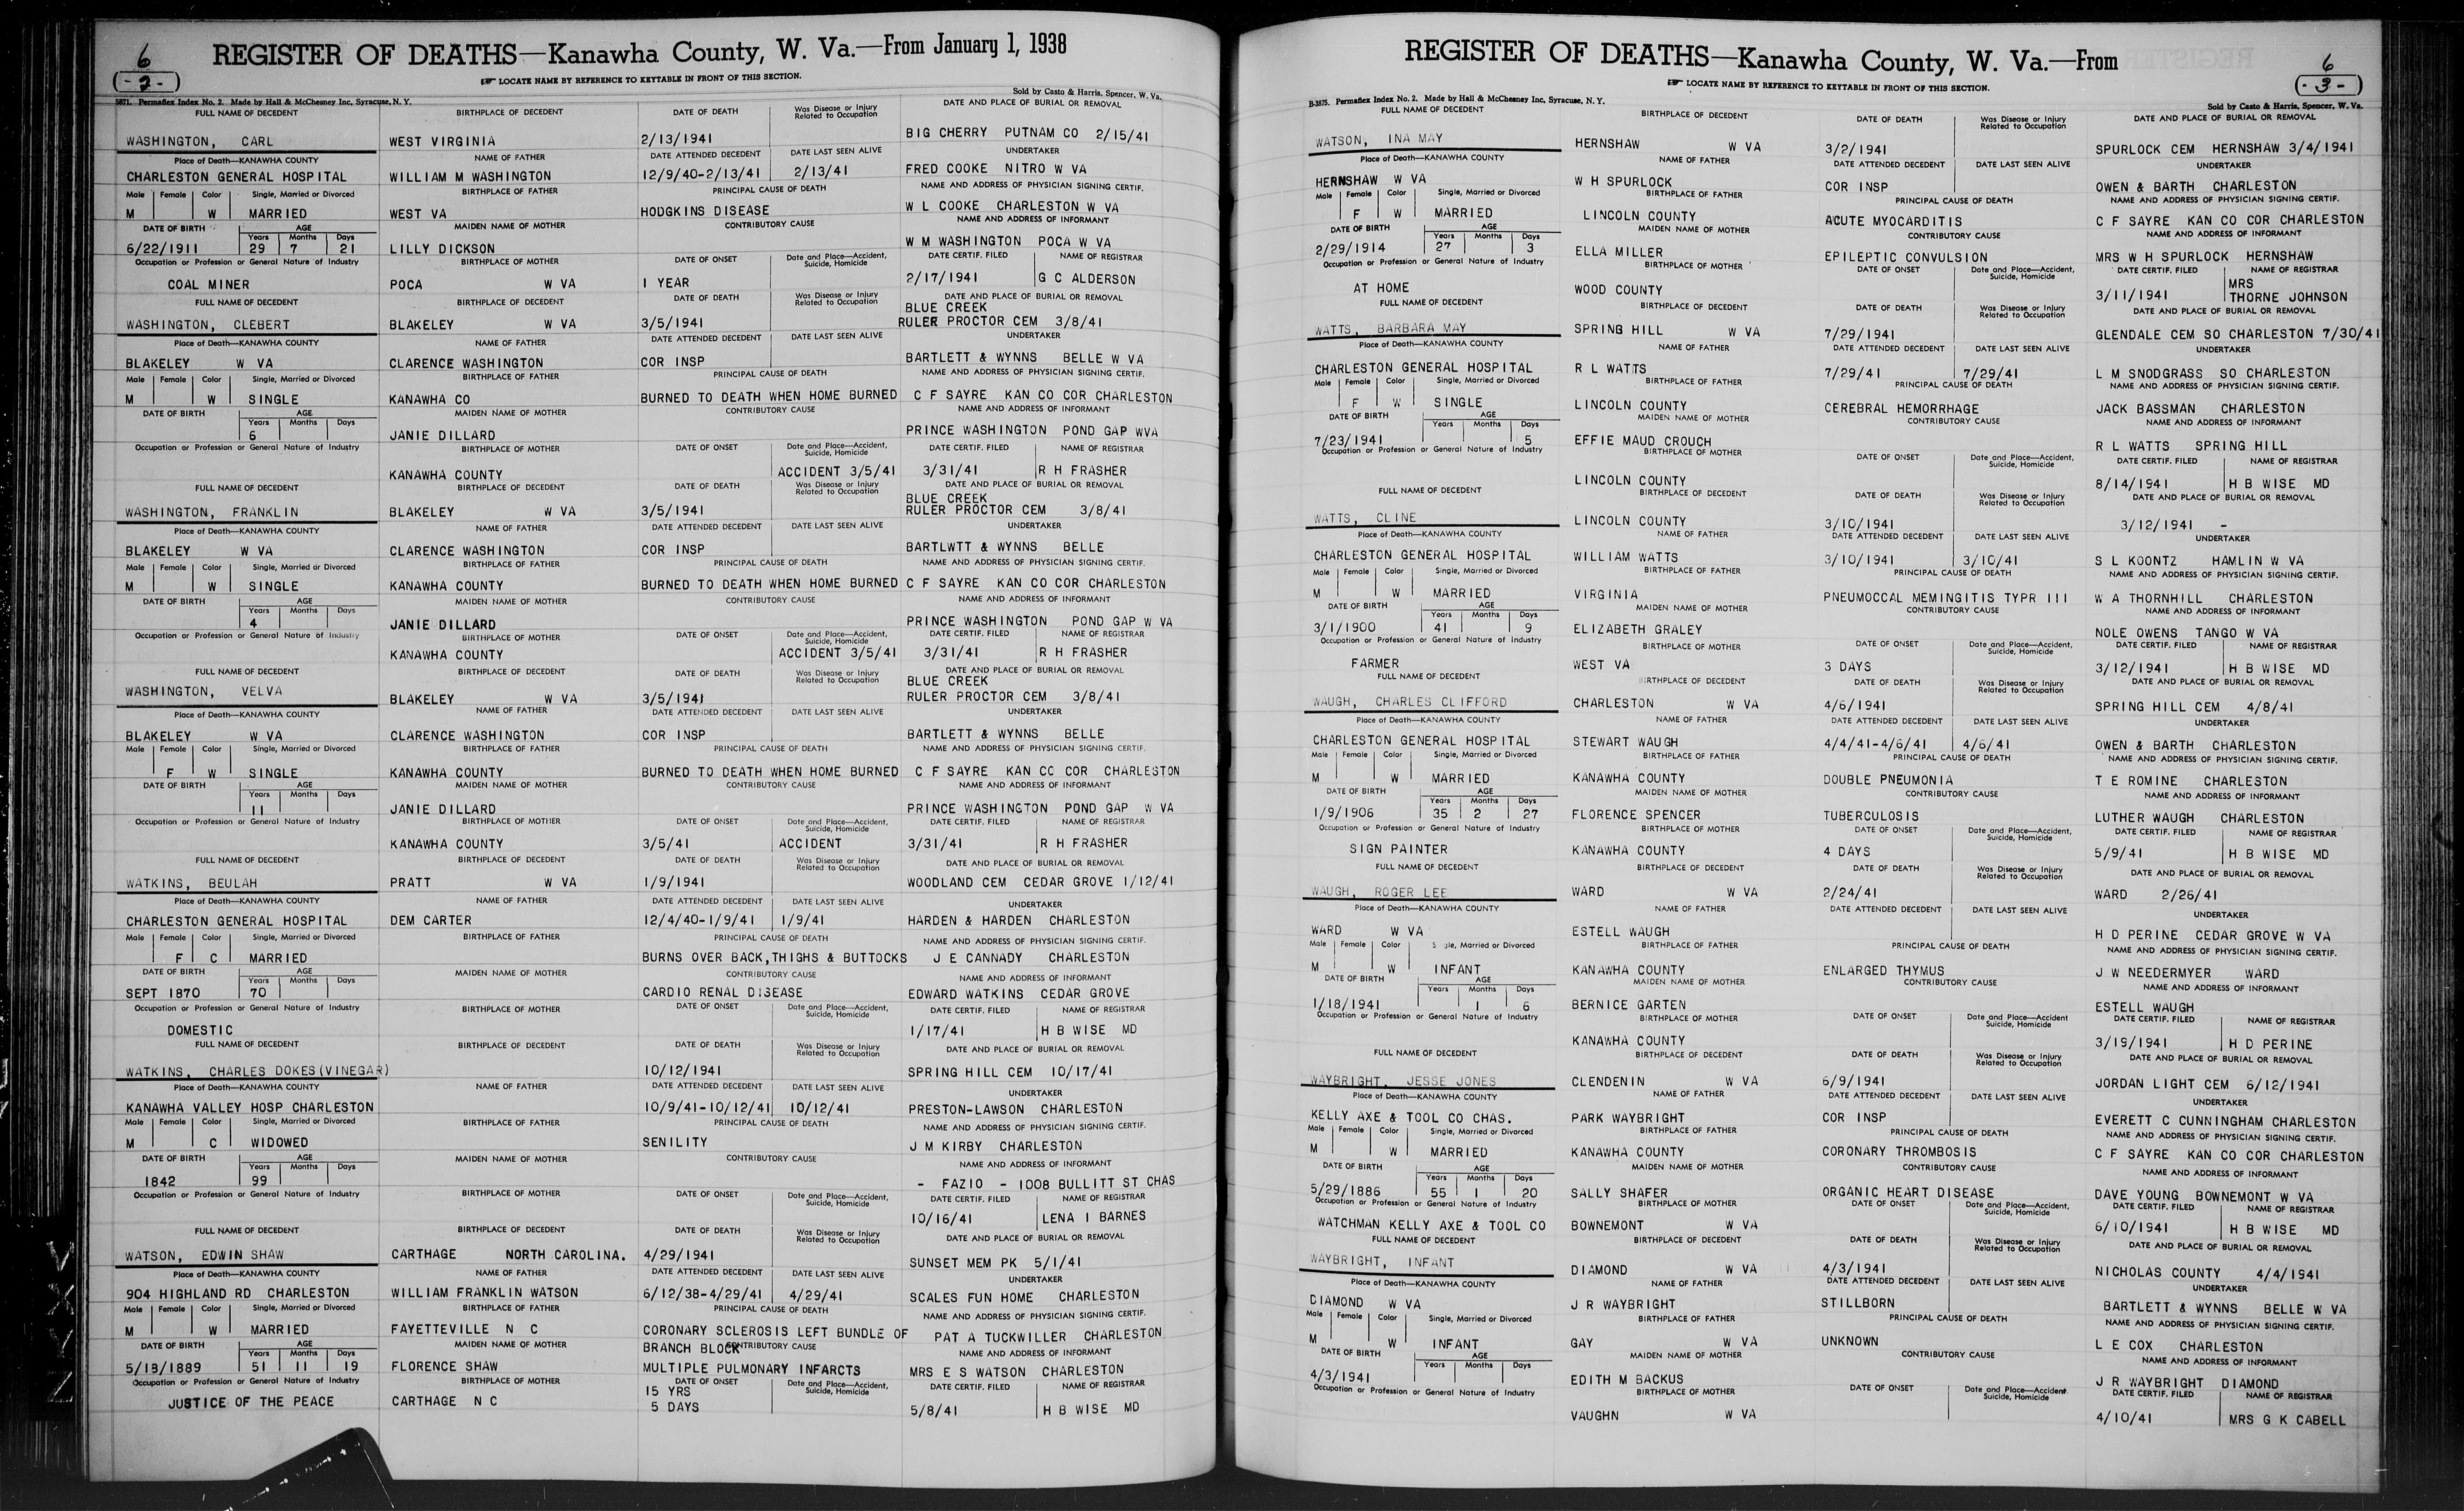 6
- 2 -
REGISTER OF DEATHS—Kanawha County, W. Va.—From January 1, 1938
☞ LOCATE NAME BY REFERENCE TO KEYTABLE IN FRONT OF THIS SECTION.
5871. Permaflex Index No. 2. Made by Hall & McChesney Inc, Syracuse, N. Y. Sold by Casto & Harris, Spencer, W. Va.
FULL NAME OF DECEDENT BIRTHPLACE OF DECEDENT DATE OF DEATH Was Disease or Injury Related to Occupation DATE AND PLACE OF BURIAL OR REMOVAL
WASHINGTON, CARL WEST VIRGINIA 2/13/1941 BIG CHERRY PUTNAM CO 2/15/41
Place of Death—KANAWHA COUNTY NAME OF FATHER DATE ATTENDED DECEDENT DATE LAST SEEN ALIVE UNDERTAKER
CHARLESTON GENERAL HOSPITAL WILLIAM M WASHINGTON 12/9/40-2/13/41 2/13/41 FRED COOKE NITRO W VA
Male Female Color Single, Married or Divorced BIRTHPLACE OF FATHER PRINCIPAL CAUSE OF DEATH NAME AND ADDRESS OF PHYSICIAN SIGNING CERTIF.
M W MARRIED WEST VA HODGKINS DISEASE W L COOKE CHARLESTON W VA
DATE OF BIRTH AGE Years Months Days MAIDEN NAME OF MOTHER CONTRIBUTORY CAUSE NAME AND ADDRESS OF INFORMANT
6/22/1911 29 7 21 LILLY DICKSON W M WASHINGTON POCA W VA
Occupation or Profession or General Nature of Industry BIRTHPLACE OF MOTHER DATE OF ONSET Date and Place—Accident, Suicide, Homicide DATE CERTIF. FILED NAME OF REGISTRAR
COAL MINER POCA W VA 1 YEAR 2/17/1941 G C ALDERSON
FULL NAME OF DECEDENT BIRTHPLACE OF DECEDENT DATE OF DEATH Was Disease or Injury Related to Occupation DATE AND PLACE OF BURIAL OR REMOVAL
BLUE CREEK
WASHINGTON, CLEBERT BLAKELEY W VA 3/5/1941 RULER PROCTOR CEM 3/8/41
Place of Death—KANAWHA COUNTY NAME OF FATHER DATE ATTENDED DECEDENT DATE LAST SEEN ALIVE UNDERTAKER
BLAKELEY W VA CLARENCE WASHINGTON COR INSP BARTLETT & WYNNS BELLE W VA
Male Female Color Single, Married or Divorced BIRTHPLACE OF FATHER PRINCIPAL CAUSE OF DEATH NAME AND ADDRESS OF PHYSICIAN SIGNING CERTIF.
M W SINGLE KANAWHA CO BURNED TO DEATH WHEN HOME BURNED C F SAYRE KAN CO COR CHARLESTON
DATE OF BIRTH AGE Years Months Days MAIDEN NAME OF MOTHER CONTRIBUTORY CAUSE NAME AND ADDRESS OF INFORMANT
6 JANIE DILLARD PRINCE WASHINGTON POND GAP WVA
Occupation or Profession or General Nature of Industry BIRTHPLACE OF MOTHER DATE OF ONSET Date and Place—Accident, Suicide, Homicide DATE CERTIF. FILED NAME OF REGISTRAR
KANAWHA COUNTY ACCIDENT 3/5/41 3/31/41 R H FRASHER
FULL NAME OF DECEDENT BIRTHPLACE OF DECEDENT DATE OF DEATH Was Disease or Injury Related to Occupation DATE AND PLACE OF BURIAL OR REMOVAL
BLUE CREEK
WASHINGTON, FRANKLIN BLAKELEY W VA 3/5/1941 RULER PROCTOR CEM 3/8/41
Place of Death—KANAWHA COUNTY NAME OF FATHER DATE ATTENDED DECEDENT DATE LAST SEEN ALIVE UNDERTAKER
BLAKELEY W VA CLARENCE WASHINGTON COR INSP BARTLWTT & WYNNS BELLE
Male Female Color Single, Married or Divorced BIRTHPLACE OF FATHER PRINCIPAL CAUSE OF DEATH NAME AND ADDRESS OF PHYSICIAN SIGNING CERTIF.
M W SINGLE KANAWHA COUNTY BURNED TO DEATH WHEN HOME BURNED C F SAYRE KAN CO COR CHARLESTON
DATE OF BIRTH AGE Years Months Days MAIDEN NAME OF MOTHER CONTRIBUTORY CAUSE NAME AND ADDRESS OF INFORMANT
4 JANIE DILLARD PRINCE WASHINGTON POND GAP W VA
Occupation or Profession or General Nature of Industry BIRTHPLACE OF MOTHER DATE OF ONSET Date and Place—Accident, Suicide, Homicide DATE CERTIF. FILED NAME OF REGISTRAR
KANAWHA COUNTY ACCIDENT 3/5/41 3/31/41 R H FRASHER
FULL NAME OF DECEDENT BIRTHPLACE OF DECEDENT DATE OF DEATH Was Disease or Injury Related to Occupation DATE AND PLACE OF BURIAL OR REMOVAL
BLUE CREEK
WASHINGTON, VELVA BLAKELEY W VA 3/5/1941 RULER PROCTOR CEM 3/8/41
Place of Death—KANAWHA COUNTY NAME OF FATHER DATE ATTENDED DECEDENT DATE LAST SEEN ALIVE UNDERTAKER
BLAKELEY W VA CLARENCE WASHINGTON COR INSP BARTLETT & WYNNS BELLE
Male Female Color Single, Married or Divorced BIRTHPLACE OF FATHER PRINCIPAL CAUSE OF DEATH NAME AND ADDRESS OF PHYSICIAN SIGNING CERTIF.
F W SINGLE KANAWHA COUNTY BURNED TO DEATH WHEN HOME BURNED C F SAYRE KAN CC COR CHARLESTON
DATE OF BIRTH AGE Years Months Days MAIDEN NAME OF MOTHER CONTRIBUTORY CAUSE NAME AND ADDRESS OF INFORMANT
11 JANIE DILLARD PRINCE WASHINGTON POND GAP W VA
Occupation or Profession or General Nature of Industry BIRTHPLACE OF MOTHER DATE OF ONSET Date and Place—Accident, Suicide, Homicide DATE CERTIF. FILED NAME OF REGISTRAR
KANAWHA COUNTY 3/5/41 ACCIDENT 3/31/41 R H FRASHER
FULL NAME OF DECEDENT BIRTHPLACE OF DECEDENT DATE OF DEATH Was Disease or Injury Related to Occupation DATE AND PLACE OF BURIAL OR REMOVAL
WATKINS, BEULAH PRATT W VA 1/9/1941 WOODLAND CEM CEDAR GROVE 1/12/41
Place of Death—KANAWHA COUNTY NAME OF FATHER DATE ATTENDED DECEDENT DATE LAST SEEN ALIVE UNDERTAKER
CHARLESTON GENERAL HOSPITAL DEM CARTER 12/4/40-1/9/41 1/9/41 HARDEN & HARDEN CHARLESTON
Male Female Color Single, Married or Divorced BIRTHPLACE OF FATHER PRINCIPAL CAUSE OF DEATH NAME AND ADDRESS OF PHYSICIAN SIGNING CERTIF.
F C MARRIED BURNS OVER BACK,THIGHS & BUTTOCKS J E CANNADY CHARLESTON
DATE OF BIRTH AGE Years Months Days MAIDEN NAME OF MOTHER CONTRIBUTORY CAUSE NAME AND ADDRESS OF INFORMANT
SEPT 1870 70 CARDIO RENAL DISEASE EDWARD WATKINS CEDAR GROVE
Occupation or Profession or General Nature of Industry BIRTHPLACE OF MOTHER DATE OF ONSET Date and Place—Accident, Suicide, Homicide DATE CERTIF. FILED NAME OF REGISTRAR
DOMESTIC 1/17/41 H B WISE MD
FULL NAME OF DECEDENT BIRTHPLACE OF DECEDENT DATE OF DEATH Was Disease or Injury Related to Occupation DATE AND PLACE OF BURIAL OR REMOVAL
WATKINS, CHARLES DOKES(VINEGAR) 10/12/1941 SPRING HILL CEM 10/17/41
Place of Death—KANAWHA COUNTY NAME OF FATHER DATE ATTENDED DECEDENT DATE LAST SEEN ALIVE UNDERTAKER
KANAWHA VALLEY HOSP CHARLESTON 10/9/41-10/12/41 10/12/41 PRESTON-LAWSON CHARLESTON
Male Female Color Single, Married or Divorced BIRTHPLACE OF FATHER PRINCIPAL CAUSE OF DEATH NAME AND ADDRESS OF PHYSICIAN SIGNING CERTIF.
M C WIDOWED SENILITY J M KIRBY CHARLESTON
DATE OF BIRTH AGE Years Months Days MAIDEN NAME OF MOTHER CONTRIBUTORY CAUSE NAME AND ADDRESS OF INFORMANT
1842 99 - FAZIO - 1008 BULLITT ST CHAS
Occupation or Profession or General Nature of Industry BIRTHPLACE OF MOTHER DATE OF ONSET Date and Place—Accident, Suicide, Homicide DATE CERTIF. FILED NAME OF REGISTRAR
10/16/41 LENA I BARNES
FULL NAME OF DECEDENT BIRTHPLACE OF DECEDENT DATE OF DEATH Was Disease or Injury Related to Occupation DATE AND PLACE OF BURIAL OR REMOVAL
WATSON, EDWIN SHAW CARTHAGE NORTH CAROLINA. 4/29/1941 SUNSET MEM PK 5/1/41
Place of Death—KANAWHA COUNTY NAME OF FATHER DATE ATTENDED DECEDENT DATE LAST SEEN ALIVE UNDERTAKER
904 HIGHLAND RD CHARLESTON WILLIAM FRANKLIN WATSON 6/12/38-4/29/41 4/29/41 SCALES FUN HOME CHARLESTON
Male Female Color Single, Married or Divorced BIRTHPLACE OF FATHER PRINCIPAL CAUSE OF DEATH NAME AND ADDRESS OF PHYSICIAN SIGNING CERTIF.
M W MARRIED FAYETTEVILLE N C CORONARY SCLEROSIS LEFT BUNDLE OF PAT A TUCKWILLER CHARLESTON
BRANCH BLOCK
DATE OF BIRTH AGE Years Months Days MAIDEN NAME OF MOTHER CONTRIBUTORY CAUSE NAME AND ADDRESS OF INFORMANT
5/18/1889 51 11 19 FLORENCE SHAW MULTIPLE PULMONARY INFARCTS MRS E S WATSON CHARLESTON
Occupation or Profession or General Nature of Industry BIRTHPLACE OF MOTHER DATE OF ONSET Date and Place—Accident, Suicide, Homicide DATE CERTIF. FILED NAME OF REGISTRAR
15 YRS
JUSTICE OF THE PEACE CARTHAGE N C 5 DAYS 5/8/41 H B WISE MD
V
X
Y
Z
REGISTER OF DEATHS—Kanawha County, W. Va.—From
6
- 3 -
☞ LOCATE NAME BY REFERENCE TO KEYTABLE IN FRONT OF THIS SECTION.
B-3875. Permaflex Index No. 2. Made by Hall & McChesney Inc, Syracuse, N. Y. Sold by Casto & Harris, Spencer, W. Va.
FULL NAME OF DECEDENT BIRTHPLACE OF DECEDENT DATE OF DEATH Was Disease or Injury Related to Occupation DATE AND PLACE OF BURIAL OR REMOVAL
WATSON, INA MAY HERNSHAW W VA 3/2/1941 SPURLOCK CEM HERNSHAW 3/4/1941
Place of Death—KANAWHA COUNTY NAME OF FATHER DATE ATTENDED DECEDENT DATE LAST SEEN ALIVE UNDERTAKER
HERNSHAW W VA W H SPURLOCK COR INSP OWEN & BARTH CHARLESTON
Male Female Color Single, Married or Divorced BIRTHPLACE OF FATHER PRINCIPAL CAUSE OF DEATH NAME AND ADDRESS OF PHYSICIAN SIGNING CERTIF.
F W MARRIED LINCOLN COUNTY ACUTE MYOCARDITIS C F SAYRE KAN CO COR CHARLESTON
DATE OF BIRTH AGE Years Months Days MAIDEN NAME OF MOTHER CONTRIBUTORY CAUSE NAME AND ADDRESS OF INFORMANT
2/29/1914 27 3 ELLA MILLER EPILEPTIC CONVULSION MRS W H SPURLOCK HERNSHAW
Occupation or Profession or General Nature of Industry BIRTHPLACE OF MOTHER DATE OF ONSET Date and Place—Accident, Suicide, Homicide DATE CERTIF. FILED NAME OF REGISTRAR
AT HOME WOOD COUNTY 3/11/1941 MRS THORNE JOHNSON
FULL NAME OF DECEDENT BIRTHPLACE OF DECEDENT DATE OF DEATH Was Disease or Injury Related to Occupation DATE AND PLACE OF BURIAL OR REMOVAL
WATTS, BARBARA MAY SPRING HILL W VA 7/29/1941 GLENDALE CEM SO CHARLESTON 7/30/41
Place of Death—KANAWHA COUNTY NAME OF FATHER DATE ATTENDED DECEDENT DATE LAST SEEN ALIVE UNDERTAKER
CHARLESTON GENERAL HOSPITAL R L WATTS 7/29/41 7/29/41 L M SNODGRASS SO CHARLESTON
Male Female Color Single, Married or Divorced BIRTHPLACE OF FATHER PRINCIPAL CAUSE OF DEATH NAME AND ADDRESS OF PHYSICIAN SIGNING CERTIF.
F W SINGLE LINCOLN COUNTY CEREBRAL HEMORRHAGE JACK BASSMAN CHARLESTON
DATE OF BIRTH AGE Years Months Days MAIDEN NAME OF MOTHER CONTRIBUTORY CAUSE NAME AND ADDRESS OF INFORMANT
7/23/1941 5 EFFIE MAUD CROUCH R L WATTS SPRING HILL
Occupation or Profession or General Nature of Industry BIRTHPLACE OF MOTHER DATE OF ONSET Date and Place—Accident, Suicide, Homicide DATE CERTIF. FILED NAME OF REGISTRAR
LINCOLN COUNTY 8/14/1941 H B WISE MD
FULL NAME OF DECEDENT BIRTHPLACE OF DECEDENT DATE OF DEATH Was Disease or Injury Related to Occupation DATE AND PLACE OF BURIAL OR REMOVAL
WATTS, CLINE LINCOLN COUNTY 3/10/1941 3/12/1941 -
Place of Death—KANAWHA COUNTY NAME OF FATHER DATE ATTENDED DECEDENT DATE LAST SEEN ALIVE UNDERTAKER
CHARLESTON GENERAL HOSPITAL WILLIAM WATTS 3/10/1941 3/10/41 S L KOONTZ HAMLIN W VA
Male Female Color Single, Married or Divorced BIRTHPLACE OF FATHER PRINCIPAL CAUSE OF DEATH NAME AND ADDRESS OF PHYSICIAN SIGNING CERTIF.
M W MARRIED VIRGINIA PNEUMOCCAL MEMINGITIS TYPR III W A THORNHILL CHARLESTON
DATE OF BIRTH AGE Years Months Days MAIDEN NAME OF MOTHER CONTRIBUTORY CAUSE NAME AND ADDRESS OF INFORMANT
3/1/1900 41 9 ELIZABETH GRALEY NOLE OWENS TANGO W VA
Occupation or Profession or General Nature of Industry BIRTHPLACE OF MOTHER DATE OF ONSET Date and Place—Accident, Suicide, Homicide DATE CERTIF. FILED NAME OF REGISTRAR
FARMER WEST VA 3 DAYS 3/12/1941 H B WISE MD
FULL NAME OF DECEDENT BIRTHPLACE OF DECEDENT DATE OF DEATH Was Disease or Injury Related to Occupation DATE AND PLACE OF BURIAL OR REMOVAL
WAUGH, CHARLES CLIFFORD CHARLESTON W VA 4/6/1941 SPRING HILL CEM 4/8/41
Place of Death—KANAWHA COUNTY NAME OF FATHER DATE ATTENDED DECEDENT DATE LAST SEEN ALIVE UNDERTAKER
CHARLESTON GENERAL HOSPITAL STEWART WAUGH 4/4/41-4/6/41 4/6/41 OWEN & BARTH CHARLESTON
Male Female Color Single, Married or Divorced BIRTHPLACE OF FATHER PRINCIPAL CAUSE OF DEATH NAME AND ADDRESS OF PHYSICIAN SIGNING CERTIF.
M W MARRIED KANAWHA COUNTY DOUBLE PNEUMONIA T E ROMINE CHARLESTON
DATE OF BIRTH AGE Years Months Days MAIDEN NAME OF MOTHER CONTRIBUTORY CAUSE NAME AND ADDRESS OF INFORMANT
1/9/1906 35 2 27 FLORENCE SPENCER TUBERCULOSIS LUTHER WAUGH CHARLESTON
Occupation or Profession or General Nature of Industry BIRTHPLACE OF MOTHER DATE OF ONSET Date and Place—Accident, Suicide, Homicide DATE CERTIF. FILED NAME OF REGISTRAR
SIGN PAINTER KANAWHA COUNTY 4 DAYS 5/9/41 H B WISE MD
FULL NAME OF DECEDENT BIRTHPLACE OF DECEDENT DATE OF DEATH Was Disease or Injury Related to Occupation DATE AND PLACE OF BURIAL OR REMOVAL
WAUGH, ROGER LEE WARD W VA 2/24/41 WARD 2/26/41
Place of Death—KANAWHA COUNTY NAME OF FATHER DATE ATTENDED DECEDENT DATE LAST SEEN ALIVE UNDERTAKER
WARD W VA ESTELL WAUGH H D PERINE CEDAR GROVE W VA
Male Female Color Single, Married or Divorced BIRTHPLACE OF FATHER PRINCIPAL CAUSE OF DEATH NAME AND ADDRESS OF PHYSICIAN SIGNING CERTIF.
M W INFANT KANAWHA COUNTY ENLARGED THYMUS J W NEEDERMYER WARD
DATE OF BIRTH AGE Years Months Days MAIDEN NAME OF MOTHER CONTRIBUTORY CAUSE NAME AND ADDRESS OF INFORMANT
1/18/1941 1 6 BERNICE GARTEN ESTELL WAUGH
Occupation or Profession or General Nature of Industry BIRTHPLACE OF MOTHER DATE OF ONSET Date and Place—Accident Suicide, Homicide DATE CERTIF. FILED NAME OF REGISTRAR
KANAWHA COUNTY 3/19/1941 H D PERINE
FULL NAME OF DECEDENT BIRTHPLACE OF DECEDENT DATE OF DEATH Was Disease or Injury Related to Occupation DATE AND PLACE OF BURIAL OR REMOVAL
WAYBRIGHT, JESSE JONES CLENDENIN W VA 6/9/1941 JORDAN LIGHT CEM 6/12/1941
Place of Death—KANAWHA COUNTY NAME OF FATHER DATE ATTENDED DECEDENT DATE LAST SEEN ALIVE UNDERTAKER
KELLY AXE & TOOL CO CHAS. PARK WAYBRIGHT COR INSP EVERETT C CUNNINGHAM CHARLESTON
Male Female Color Single, Married or Divorced BIRTHPLACE OF FATHER PRINCIPAL CAUSE OF DEATH NAME AND ADDRESS OF PHYSICIAN SIGNING CERTIF.
M W MARRIED KANAWHA COUNTY CORONARY THROMBOSIS C F SAYRE KAN CO COR CHARLESTON
DATE OF BIRTH AGE Years Months Days MAIDEN NAME OF MOTHER CONTRIBUTORY CAUSE NAME AND ADDRESS OF INFORMANT
5/29/1886 55 1 20 SALLY SHAFER ORGANIC HEART DISEASE DAVE YOUNG BOWNEMONT W VA
Occupation or Profession or General Nature of Industry BIRTHPLACE OF MOTHER DATE OF ONSET Date and Place—Accident, Suicide, Homicide DATE CERTIF. FILED NAME OF REGISTRAR
WATCHMAN KELLY AXE & TOOL CO BOWNEMONT W VA 6/10/1941 H B WISE MD
FULL NAME OF DECEDENT BIRTHPLACE OF DECEDENT DATE OF DEATH Was Disease or Injury Related to Occupation DATE AND PLACE OF BURIAL OR REMOVAL
WAYBRIGHT, INFANT DIAMOND W VA 4/3/1941 NICHOLAS COUNTY 4/4/1941
Place of Death—KANAWHA COUNTY NAME OF FATHER DATE ATTENDED DECEDENT DATE LAST SEEN ALIVE UNDERTAKER
DIAMOND W VA J R WAYBRIGHT STILLBORN BARTLETT & WYNNS BELLE W VA
Male Female Color Single, Married or Divorced BIRTHPLACE OF FATHER PRINCIPAL CAUSE OF DEATH NAME AND ADDRESS OF PHYSICIAN SIGNING CERTIF.
M W INFANT GAY W VA UNKNOWN L E COX CHARLESTON
DATE OF BIRTH AGE Years Months Days MAIDEN NAME OF MOTHER CONTRIBUTORY CAUSE NAME AND ADDRESS OF INFORMANT
4/3/1941 EDITH M BACKUS J R WAYBRIGHT DIAMOND
Occupation or Profession or General Nature of Industry BIRTHPLACE OF MOTHER DATE OF ONSET Date and Place—Accident. Suicide, Homicide DATE CERTIF. FILED NAME OF REGISTRAR
VAUGHN W VA 4/10/41 MRS G K CABELL